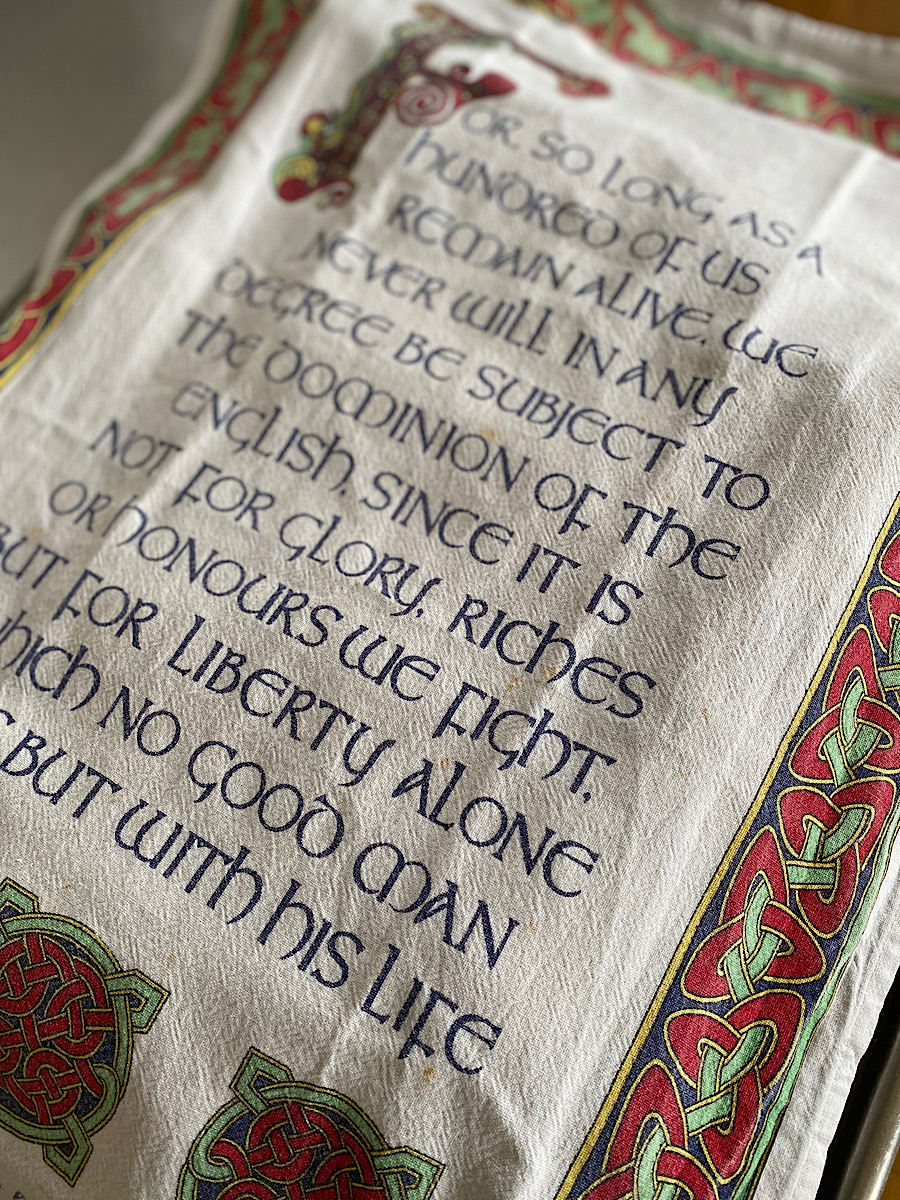 FOR SO LONG AS A
HUNDRED OF US
REMAIN ALIVE, WE
NEVER WILL IN ANY
DEGREE BE SUBJECT TO
THE DOMINION OF THE
ENGLISH, SINCE IT IS
NOT FOR GLORY, RICHES
OR HONOURS WE FIGHT,
BUT FOR LIBERTY ALONE
WHICH NO GOOD MAN
BUT WITH HIS LIFE